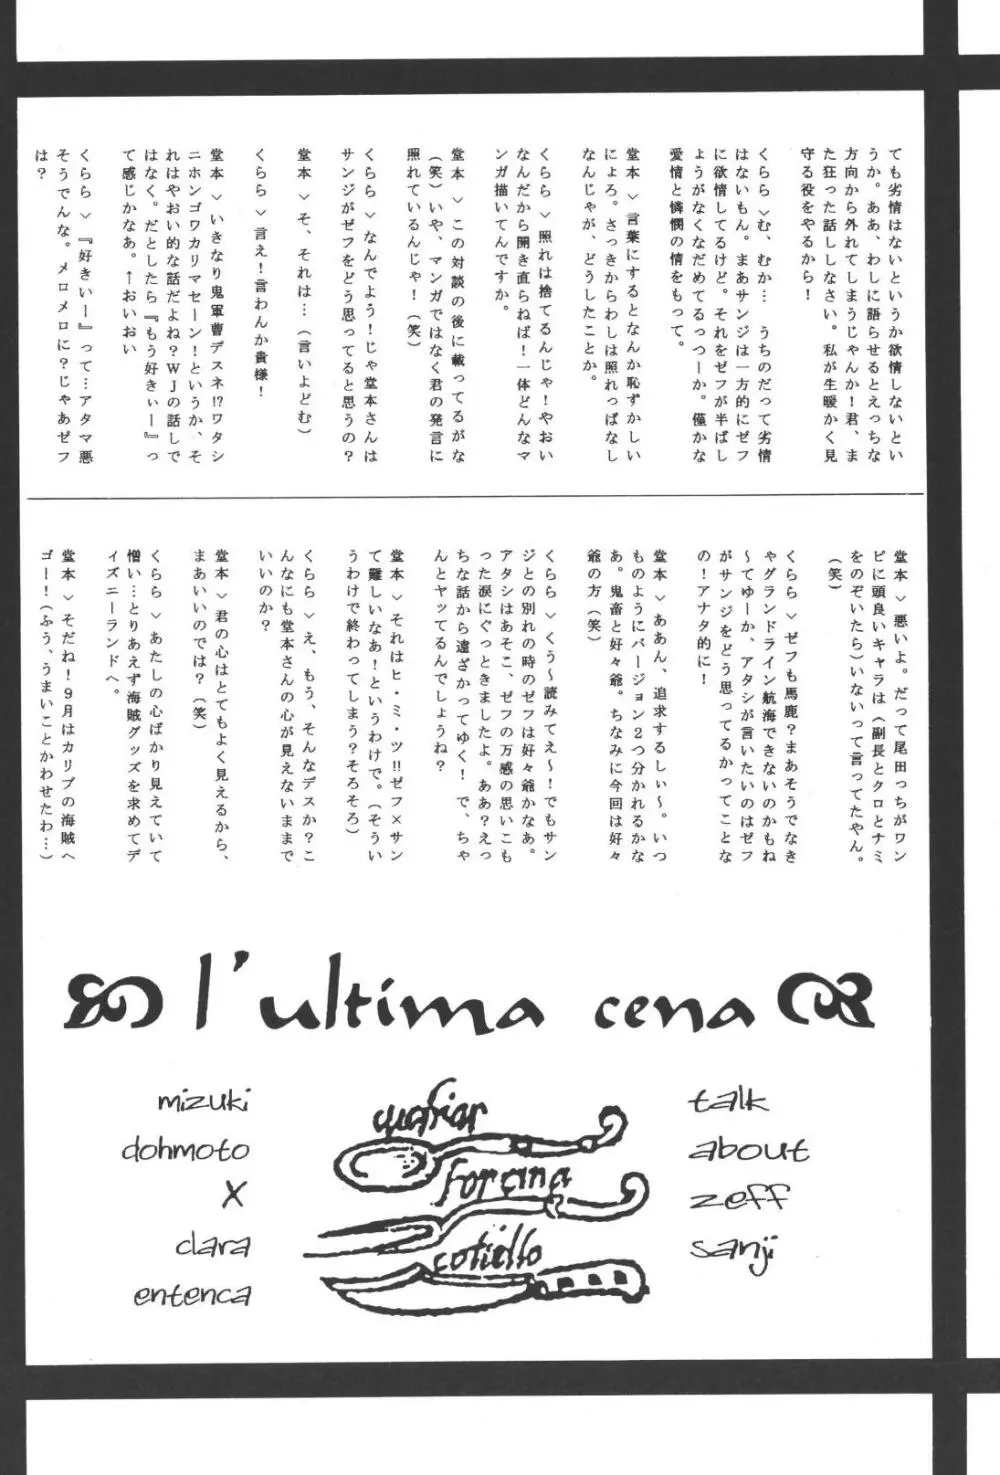 ても劣情はないというか欲情しないとい
うか。ああ、わしに語らせるとえっちな
方向から外れてしまうじゃんか！君、ま
た狂った話ししなさい。私が生暖かく見
守る役をやるから！
くらら＞む、むか… うちのだって劣情
はないもん。まあサンジは一方的にゼフ
に欲情してるけど。それをゼフが半ばし
ょうがなくなだめてるっつーか。僅かな
愛情と憐憫の情をもって。
堂本＞言葉にするとなんか恥ずかしい
によろ。さっきからわしは照れっぱなし
なんじゃが、どうしたことか。
くらら＞照れは捨てるんじゃ！やおい
なんだから開き直らねば！一体どんなマ
ンガ描いてんですか。
堂本＞この対談の後に載ってるがな
（笑）いや、マンガではなく君の発言に
照れているんじゃ！（笑）
くらら＞なんでよう！じゃ堂本さんは
サンジがゼフをどう思ってると思うの？
堂本＞そ、それは…（言いよどむ）
くらら＞言え！言わんか貴様！
堂本＞いきなり鬼軍曹デスネ!?ワタシ
ニホンゴワカリマセーン！というか、そ
れはやおい的な話だよね？ＷＪの話しで
はなく。だとしたら『もう好きぃー』っ
て感じかなあ。←おいおい
くらら＞『好きいー』って…アタマ悪
そうでんな。メロメロに？じゃあゼフ
は？
堂本＞悪いよ。だって尾田っちがワン
ピに頭良いキャラは（副長とクロとナミ
をのぞいたら）いないって言ってたやん。
（笑）
くらら＞ゼフも馬鹿？まあそうでなき
ゃグランドライン航海できないのかもね
～てゆーか、アタシが言いたいのはゼフ
がサンジをどう思ってるかってことな
の！アナタ的に！
堂本＞ああん、追求するしぃ～。いつ
ものようにバージョン２つ分かれるかな
あ。鬼畜と好々爺。ちなみに今回は好々
爺の方（笑）
くらら＞くう～読みてえ～！でもサン
ジとの別れの時のゼフは好々爺かなあ。
アタシはあそこ、ゼフの万感の思いこも
った涙にぐっときましたよ。ああ？えっ
ちな話から遠ざかってゆく！で、ちゃ
んとヤッてるんでしょうね？
堂本＞それはヒ・ミ・ツ!!ゼフ×サン
て難しいなあ！というわけで。（そうい
うわけで終わってしまう？そろそろ）
くらら＞え、もう、そんなデスか？こ
んなにも堂本さんの心が見えないままで
いいのか？
堂本＞君の心はとてもよく見えるから、
まあいいのでは？（笑）
くらら＞あたしの心ばかり見えていて
憎い…とりあえず海賊グッズを求めてデ
ィズニーランドへ。
堂本＞そだね！９月はカリブの海賊へ
ゴー！（ふう、うまいことかわせたわ…）
l'ultima cena
mizuki
dohmoto
X
clara
entenca
forcina
coltello
talk
about
zeff
sanji